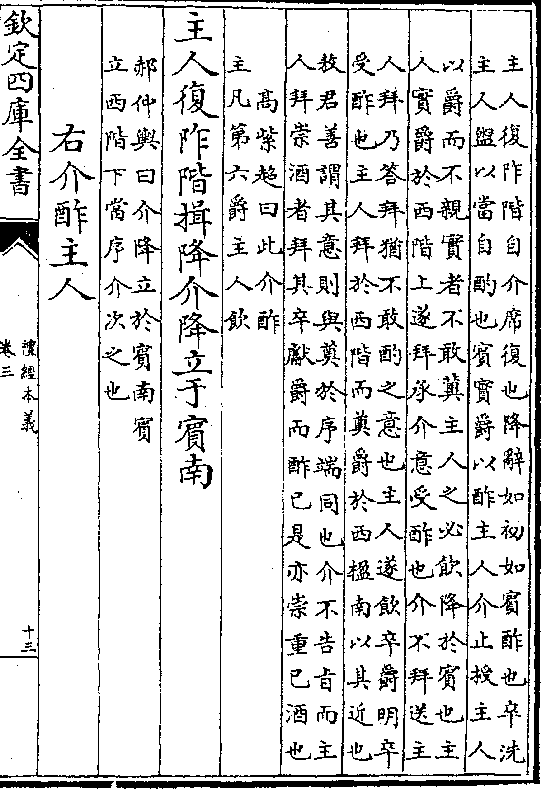 主人復阼階自介席復也降辭如初如賓酢也卒洗
主人盥以當自酌也賓實爵以酢主人介止授主人
以爵而不親實者不敢冀主人之必飲降於賓也主
人實爵於西階上遂拜承介意受酢也介不拜送主
人拜乃答拜猶不敢酌之意也主人遂飲卒爵明卒
受酢也主人拜於西階而奠爵於西楹南以其近也
敖君善謂其意則與奠於序端同也介不告旨而主
人拜崇酒者拜其卒獻爵而酢已是亦崇重已酒也
高紫超曰此介酢
主凡第六爵主人飲
主人復阼階揖降介降立于賓南
郝仲輿曰介降立於賓南賓
立西階下當序介次之也
右介酢主人
欽定四庫全書
禮經本義
卷三
十三